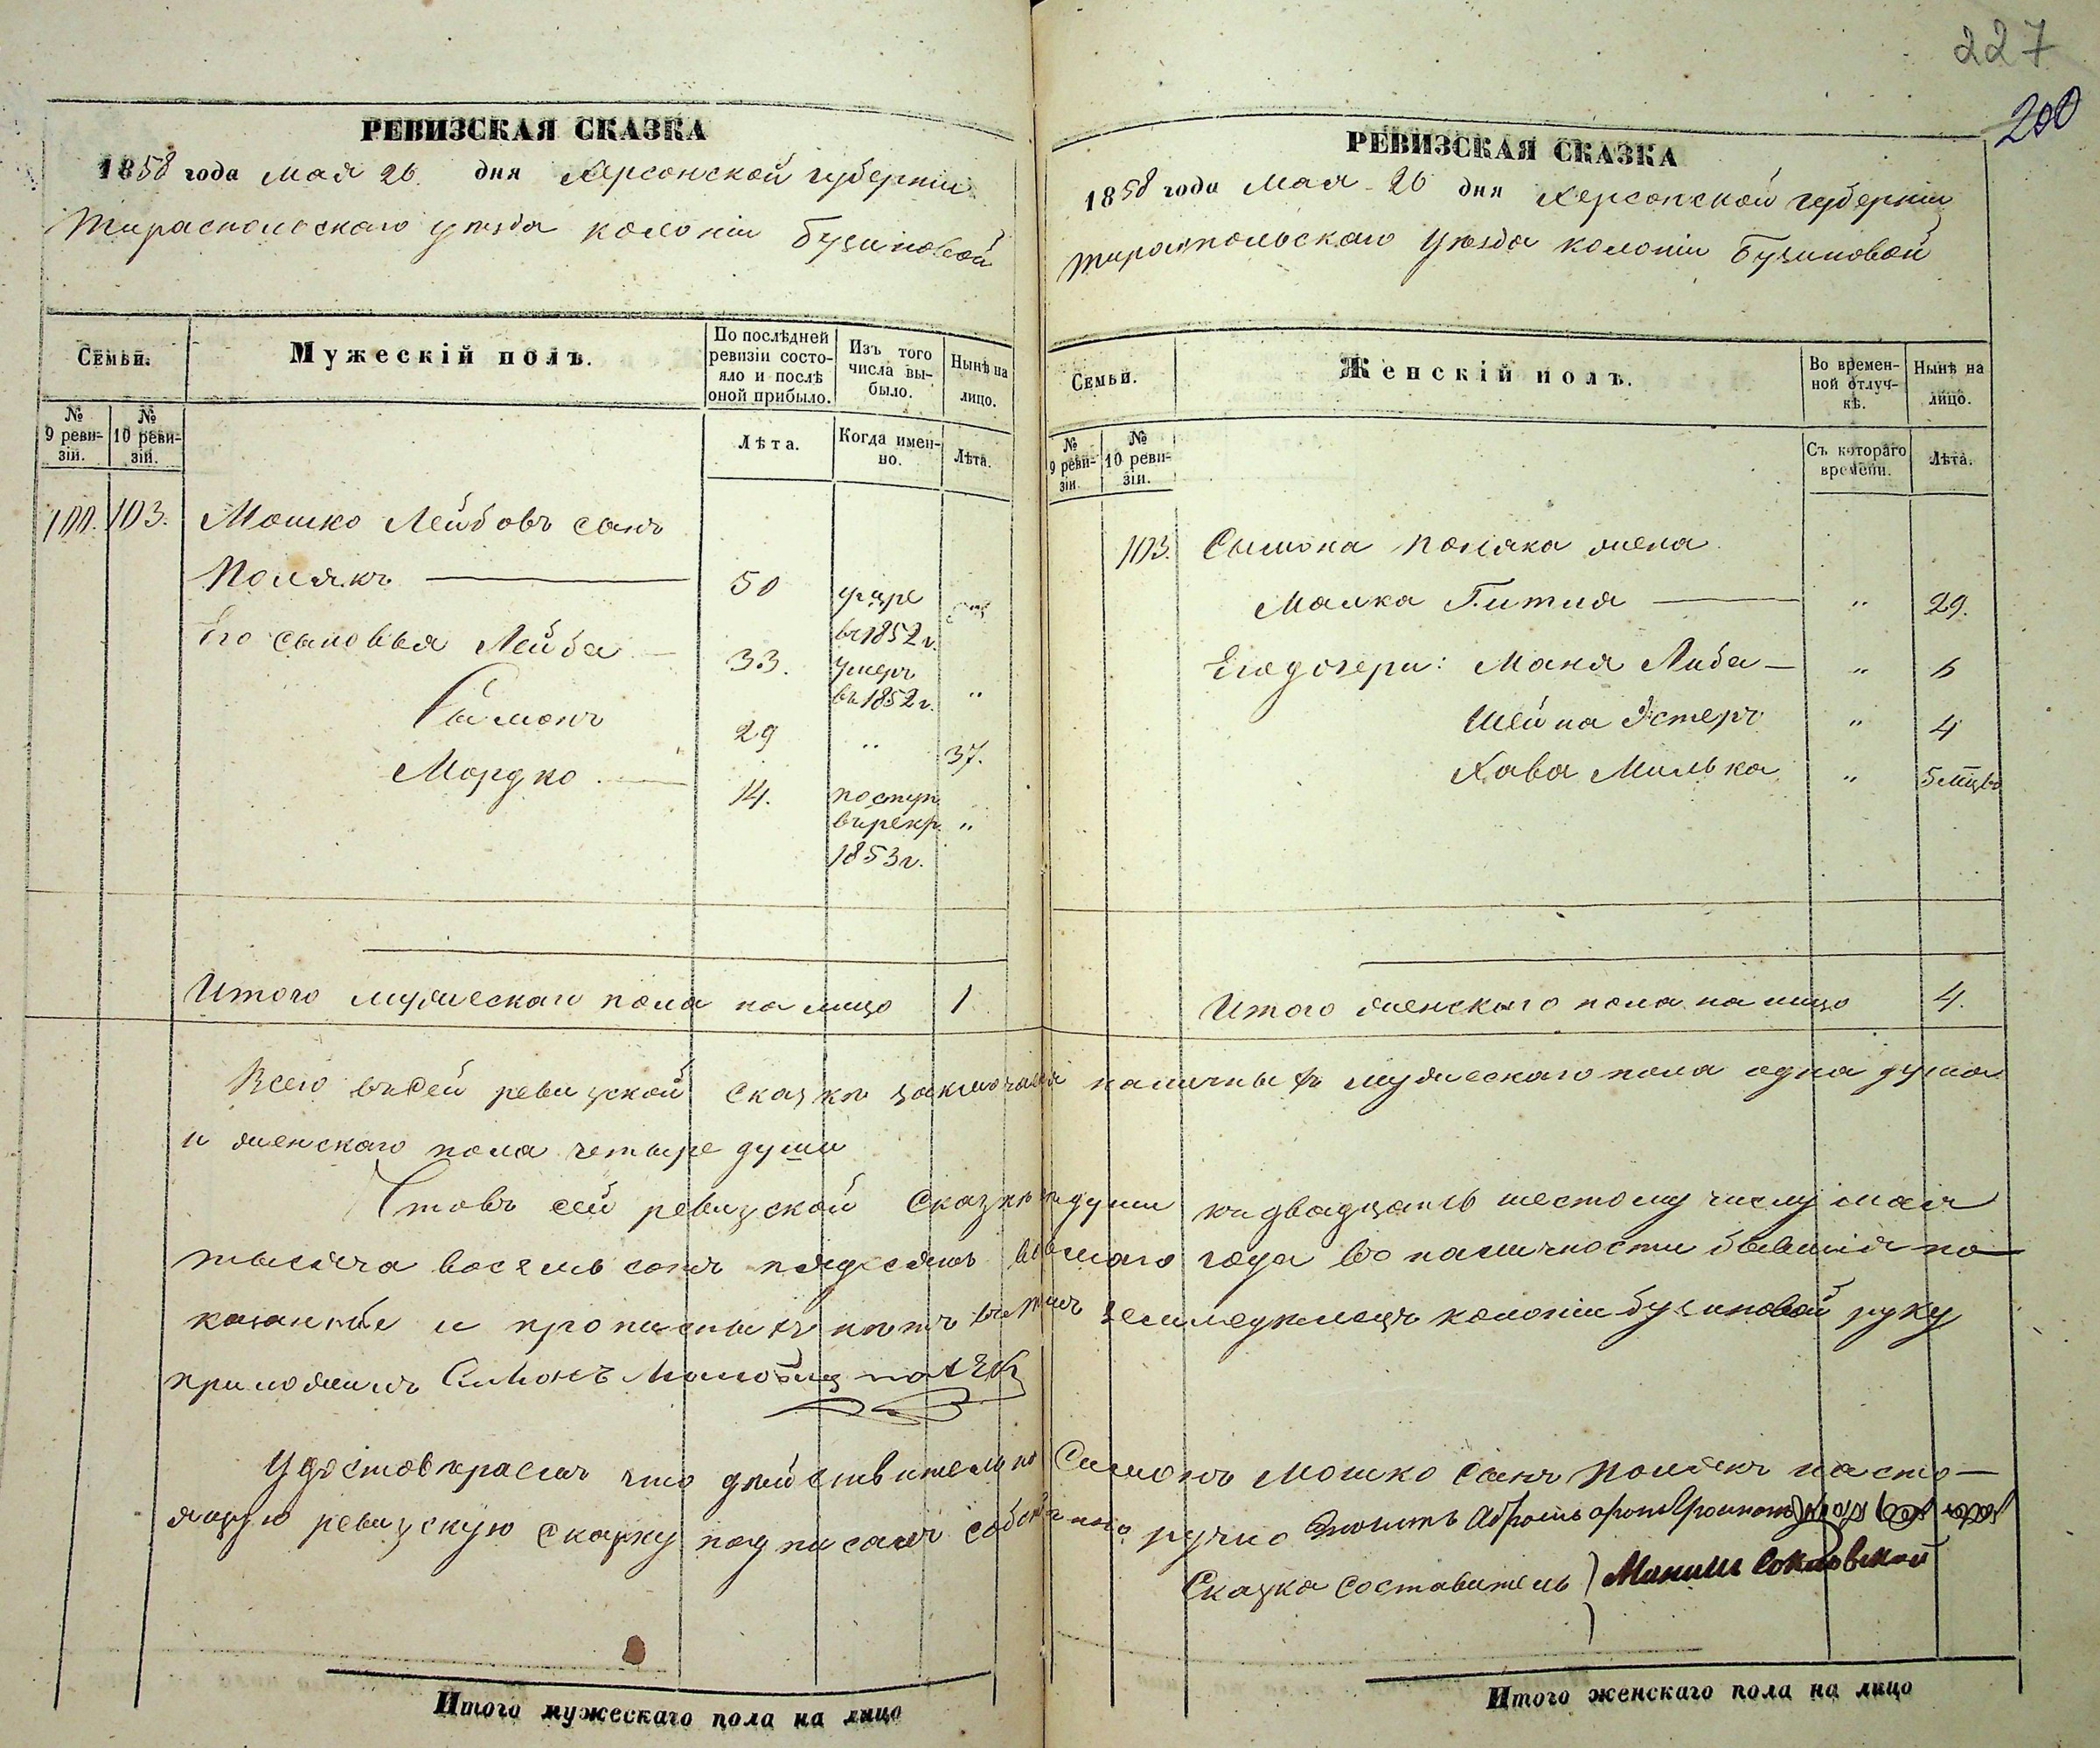 227
200
РЕВИЗСКАЯ СКАЗКА
1858 года Мая 26. дня Херсонской губерніи
Тираспольскаго уѣзда колоніи Бузиновой
Семьи.
Мужескій полъ.
По послѣдней ревизіи состояло и послѣ оной прибыло.
Изъ того числа выбыло.
Нынѣ на лицо.
№ 9 ревизіи.
№ 10 ревизіи.
Лѣта.
Когда именно.
Лѣта.
100. 103. Мошко Лейбовъ сынъ
Полякъ 50 умре въ 1852 г.
Его сыновья Лейба 33. умеръ въ 1852 г. "
Сымонъ 29 " 37.
Мордко 14. поступ. въ рекр. 1853 г. "
Итого мужескаго пола на лицо 1
РЕВИЗСКАЯ СКАЗКА
1858 года Мая 26 дня Херсонской губерніи
Тираспольскаго уѣзда колоніи Бузиновой
Семьи.
Женскій полъ.
Во временной отлучкѣ.
Нынѣ на лицо.
№ 9 ревизіи.
№ 10 ревизіи.
Съ котораго времени.
Лѣта.
103. Сымона Поляка жена
Малка Гитля " 29.
Его дочери: Маня Либа "
Шейна Эстеръ " 4
Хава Милька " 5 мцвъ
Итого женскаго пола на лицо 4.
Всего въ сей ревизской сказкѣ заключается наличныхъ мужескаго пола одна душа
и женскаго пола четыре души
Что въ сей ревизской сказкѣ всѣ души къ двадцать шестому числу мая
тысяча восемь сотъ пядесятъ восмаго года во наличности бывшія по-
казанны и прописныхъ нѣтъ въ томъ земледѣлецъ колоніи Бузиновой руку
приложилъ Симонъ
Удостовѣряемъ что дѣйствительно Симонъ Мошко сынъ Полякъ насто-
ящую ревизскую сказку подписалъ собственно ручно
Сказка составитель
Итого мужескаго пола на лицо
Итого женскаго пола на лицо